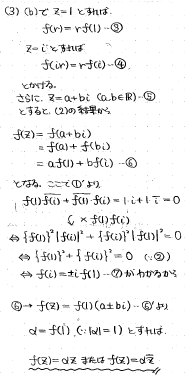 (3) (b)で z=1 とすれば
f(r)=rf(1)-③
z=i とすれば
f(ir)=rf(i)-④
とかける。
さらに z=a+bi (a,b∈R)-⑤
とすると, (2)の結果から
f(z)=f(a+bi)
=f(a)+f(bi)
=af(1)+bf(i)-⑥
となる。ここで①'より
f(1)f(i)+f(1)f(i)=1・i+1・i=0
× f(1)f(i)
⇔{f(1)}²|f(i)|²+{f(i)}²|f(1)|²=0
⇔{f(1)}²+{f(i)}²=0 (∵②)
⇔ f(i)=±i f(1)-⑦がわかるから
⑥→ f(z)=f(1)(a±bi)-⑥'より
α=f(1) (∵|α|=1) とすれば,
f(z)=αz または f(z)=αz̄